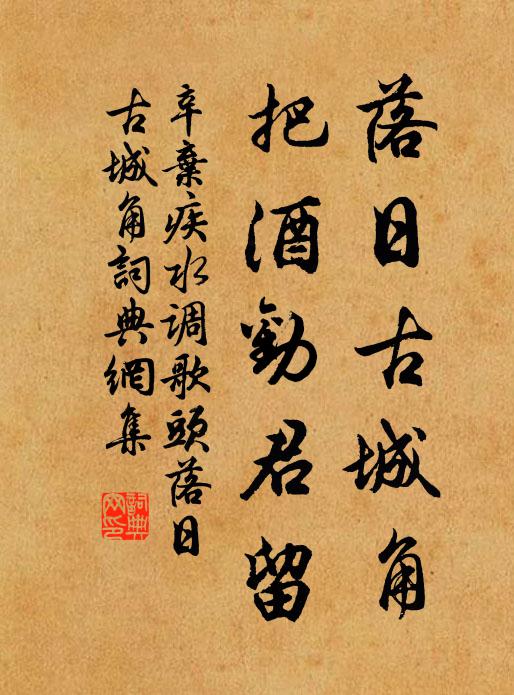 落日古城角
把酒勸君留
辛棄疾水调歌頭落日
古城角詞典網集
詞典网印